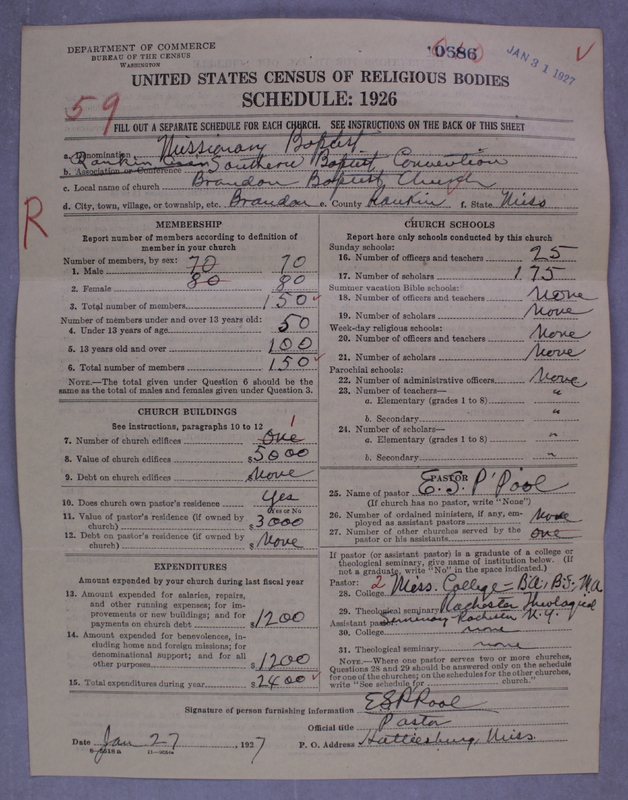 DEPARTMENT OF COMMERCE
BUREAU OF THE CENSUS
WASHINGTON
10686
JAN 31 1927
UNITED STATES CENSUS OF RELIGIOUS BODIES
SCHEDULE: 1926
59
FILL OUT A SEPARATE SCHEDULE FOR EACH CHURCH. SEE INSTRUCTIONS ON THE BACK OF THIS SHEET
a. Denomination Missionary Baptist
b. Association or Conference Rankin Southern Baptist Convention
c. Local name of church Brandon Baptist Church
d. City, town, village, or township, etc. Brandon e. County Rankin f. State Miss
R
MEMBERSHIP
Report number of members according to definition of
member in your church
Number of members, by sex:
1. Male 70 70
2. Female 80 80
3. Total number of members 150
Number of members under and over 13 years old:
4. Under 13 years of age 50
5. 13 years old and over 100
6. Total number of members 150
NOTE.—The total given under Question 6 should be the
same as the total of males and females given under Question 3.
CHURCH BUILDINGS
See instructions, paragraphs 10 to 12
7. Number of church edifices One 1
8. Value of church edifices $5000
9. Debt on church edifices $None
10. Does church own pastor's residence? Yes
Yes or No
11. Value of pastor's residence (if owned by
church) $3000
12. Debt on pastor's residence (if owned by
church) $None
EXPENDITURES
Amount expended by your church during last fiscal year
13. Amount expended for salaries, repairs,
and other running expenses; for im-
provements or new buildings; and for
payments on church debt $1200
14. Amount expended for benevolences, in-
cluding home and foreign missions; for
denominational support; and for all
other purposes $1200
15. Total expenditures during year $2400
CHURCH SCHOOLS
Report here only schools conducted by this church
Sunday schools:
16. Number of officers and teachers 25
17. Number of scholars 175
Summer vacation Bible schools:
18. Number of officers and teachers None
19. Number of scholars None
Week-day religious schools:
20. Number of officers and teachers None
21. Number of scholars None
Parochial schools:
22. Number of administrative officers None
23. Number of teachers—
a. Elementary (grades 1 to 8) "
b. Secondary "
24. Number of scholars—
a. Elementary (grades 1 to 8) "
b. Secondary "
PASTOR
25. Name of pastor E. S. P'Pool
(If church has no pastor, write "None")
26. Number of ordained ministers, if any, em-
ployed as assistant pastors None
27. Number of other churches served by the
pastor or his assistants one
If pastor (or assistant pastor) is a graduate of a college or
theological seminary, give name of institution below. (If
not a graduate, write "No" in the space indicated.)
Pastor: 2
28. College Miss. College - B.A., B.S., M.A.
29. Theological seminary Rochester Theological
Assistant pastor: Seminary Rochester N.Y.
30. College none
31. Theological seminary none
NOTE.—Where one pastor serves two or more churches,
Questions 28 and 29 should be answered only on the schedule
for one of the churches; on the schedules for the other churches,
write "See schedule for church."
Signature of person furnishing information E S P'Pool
Official title Pastor
Date Jan 27, 1927 P. O. Address Hattiesburg, Miss.